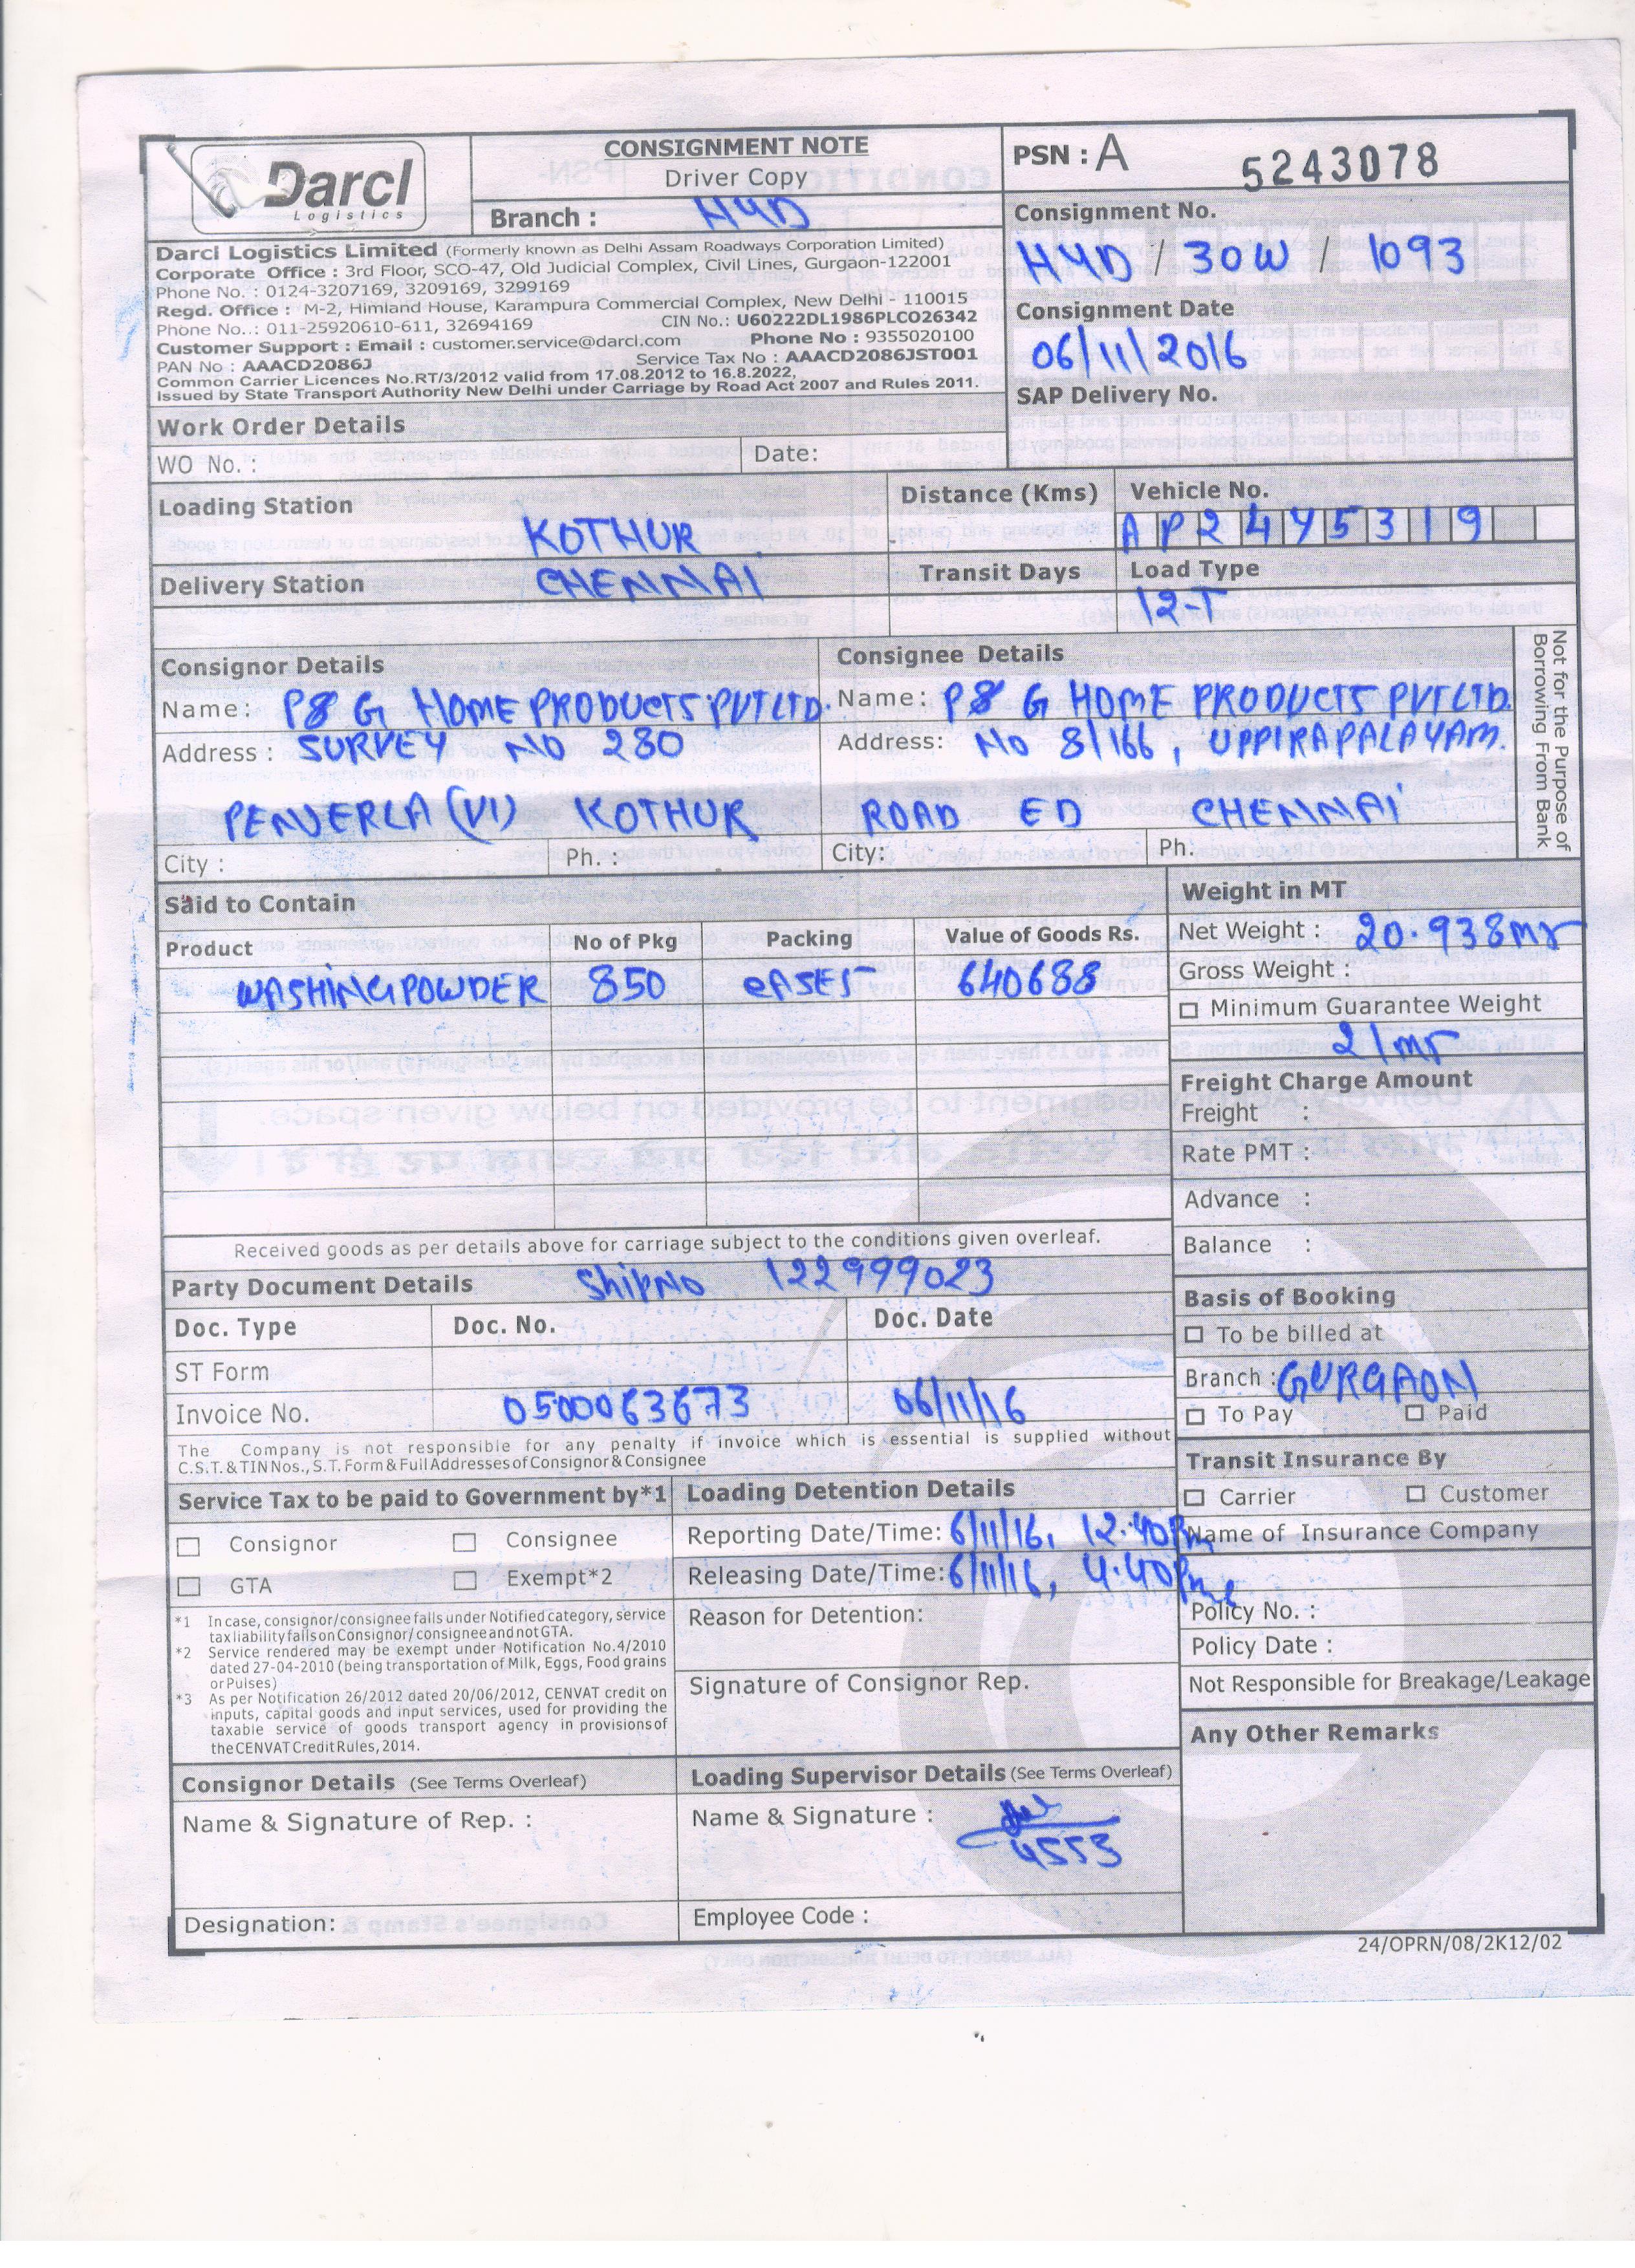 Darcl
Logistics
CONSIGNMENT NOTE
Driver Copy
Branch : HYD
PSN : A 5243078
Consignment No.
HYD / 30W / 1093
Consignment Date
06/11/2016
SAP Delivery No.
Darcl Logistics Limited (Formerly known as Delhi Assam Roadways Corporation Limited)
Corporate Office : 3rd Floor, SCO-47, Old Judicial Complex, Civil Lines, Gurgaon-122001
Phone No. : 0124-3207169, 3209169, 3299169
Regd. Office : M-2, Himland House, Karampura Commercial Complex, New Delhi - 110015
Phone No..: 011-25920610-611, 32694169 CIN No.: U60222DL1986PLCO26342
Customer Support : Email : customer.service@darcl.com Phone No : 9355020100
PAN No : AAACD2086J Service Tax No : AAACD2086JST001
Common Carrier Licences No.RT/3/2012 valid from 17.08.2012 to 16.8.2022,
Issued by State Transport Authority New Delhi under Carriage by Road Act 2007 and Rules 2011.
Work Order Details
WO No. : Date:
Loading Station KOTHUR
Distance (Kms)
Vehicle No.
AP24Y5319
Delivery Station CHENNAI
Transit Days
Load Type
12-T
Consignor Details
Name: P&G HOME PRODUCTS PVT LTD.
Address : SURVEY NO 280
PENJERLA (VI) KOTHUR
City : Ph. :
Consignee Details
Name: P&G HOME PRODUCTS PVT LTD.
Address: No 8/166, UPPIRAPALAYAM.
ROAD ED CHENNAI
City: Ph.
Not for the Purpose of
Borrowing From Bank
Said to Contain
Product No of Pkg Packing Value of Goods Rs.
WASHING POWDER 850 CASES 640688
Weight in MT
Net Weight : 20.938MT
Gross Weight :
Minimum Guarantee Weight
21MT
Freight Charge Amount
Freight :
Rate PMT :
Advance :
Balance :
Received goods as per details above for carriage subject to the conditions given overleaf.
Party Document Details ShipNo 122999023
Doc. Type Doc. No. Doc. Date
ST Form
Invoice No. 0500063673 06/11/16
The Company is not responsible for any penalty if invoice which is essential is supplied without
C.S.T. & TIN Nos., S.T. Form & Full Addresses of Consignor & Consignee
Basis of Booking
To be billed at
Branch : GURGAON
To Pay Paid
Transit Insurance By
Carrier Customer
Name of Insurance Company
Policy No. :
Policy Date :
Not Responsible for Breakage/Leakage
Any Other Remarks
Service Tax to be paid to Government by*1
Consignor Consignee
GTA Exempt*2
*1 In case, consignor/consignee falls under Notified category, service
tax liability falls on Consignor/consignee and not GTA.
*2 Service rendered may be exempt under Notification No.4/2010
dated 27-04-2010 (being transportation of Milk, Eggs, Food grains
or Pulses)
*3 As per Notification 26/2012 dated 20/06/2012, CENVAT credit on
inputs, capital goods and input services, used for providing the
taxable service of goods transport agency in provisions of
the CENVAT Credit Rules, 2014.
Loading Detention Details
Reporting Date/Time: 6/11/16, 12.40Pm
Releasing Date/Time: 6/11/16, 4.40Pm
Reason for Detention:
Signature of Consignor Rep.
Consignor Details (See Terms Overleaf)
Name & Signature of Rep. :
Designation:
Loading Supervisor Details (See Terms Overleaf)
Name & Signature :
4553
Employee Code :
24/OPRN/08/2K12/02